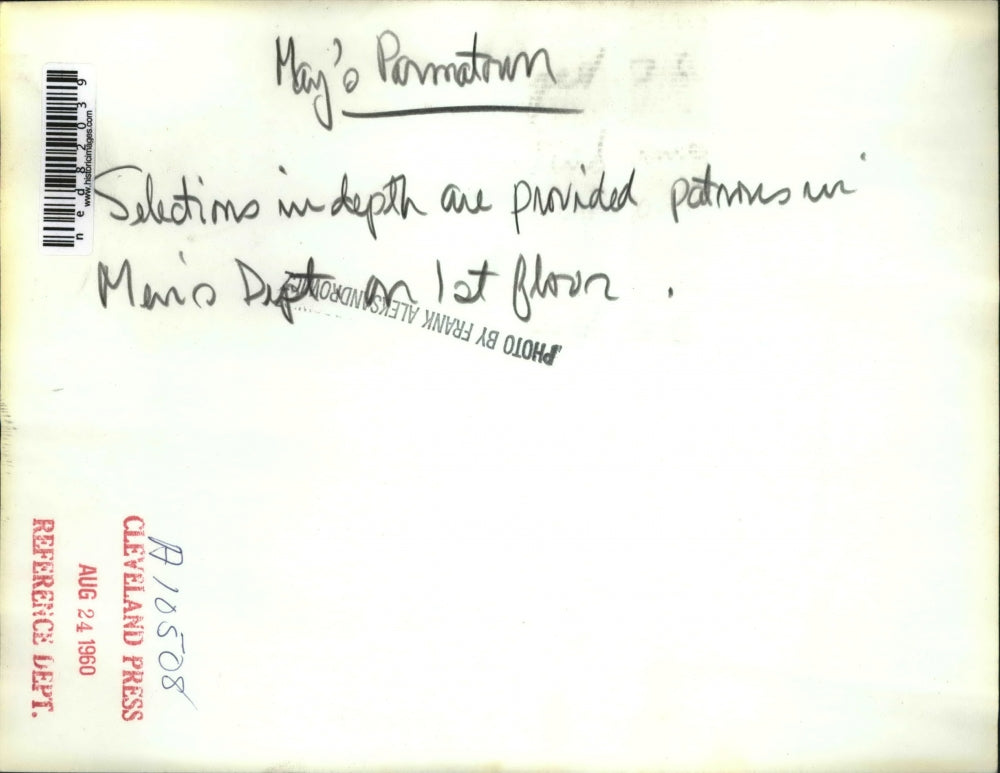 May's Parmatown
Selections in depth are provided patrons in
Men's Dept. on 1st floor.
PHOTO BY FRANK ALEKSANDROWICZ
ned82039
www.historicimages.com
A10508
CLEVELAND PRESS
AUG 24 1960
REFERENCE DEPT.